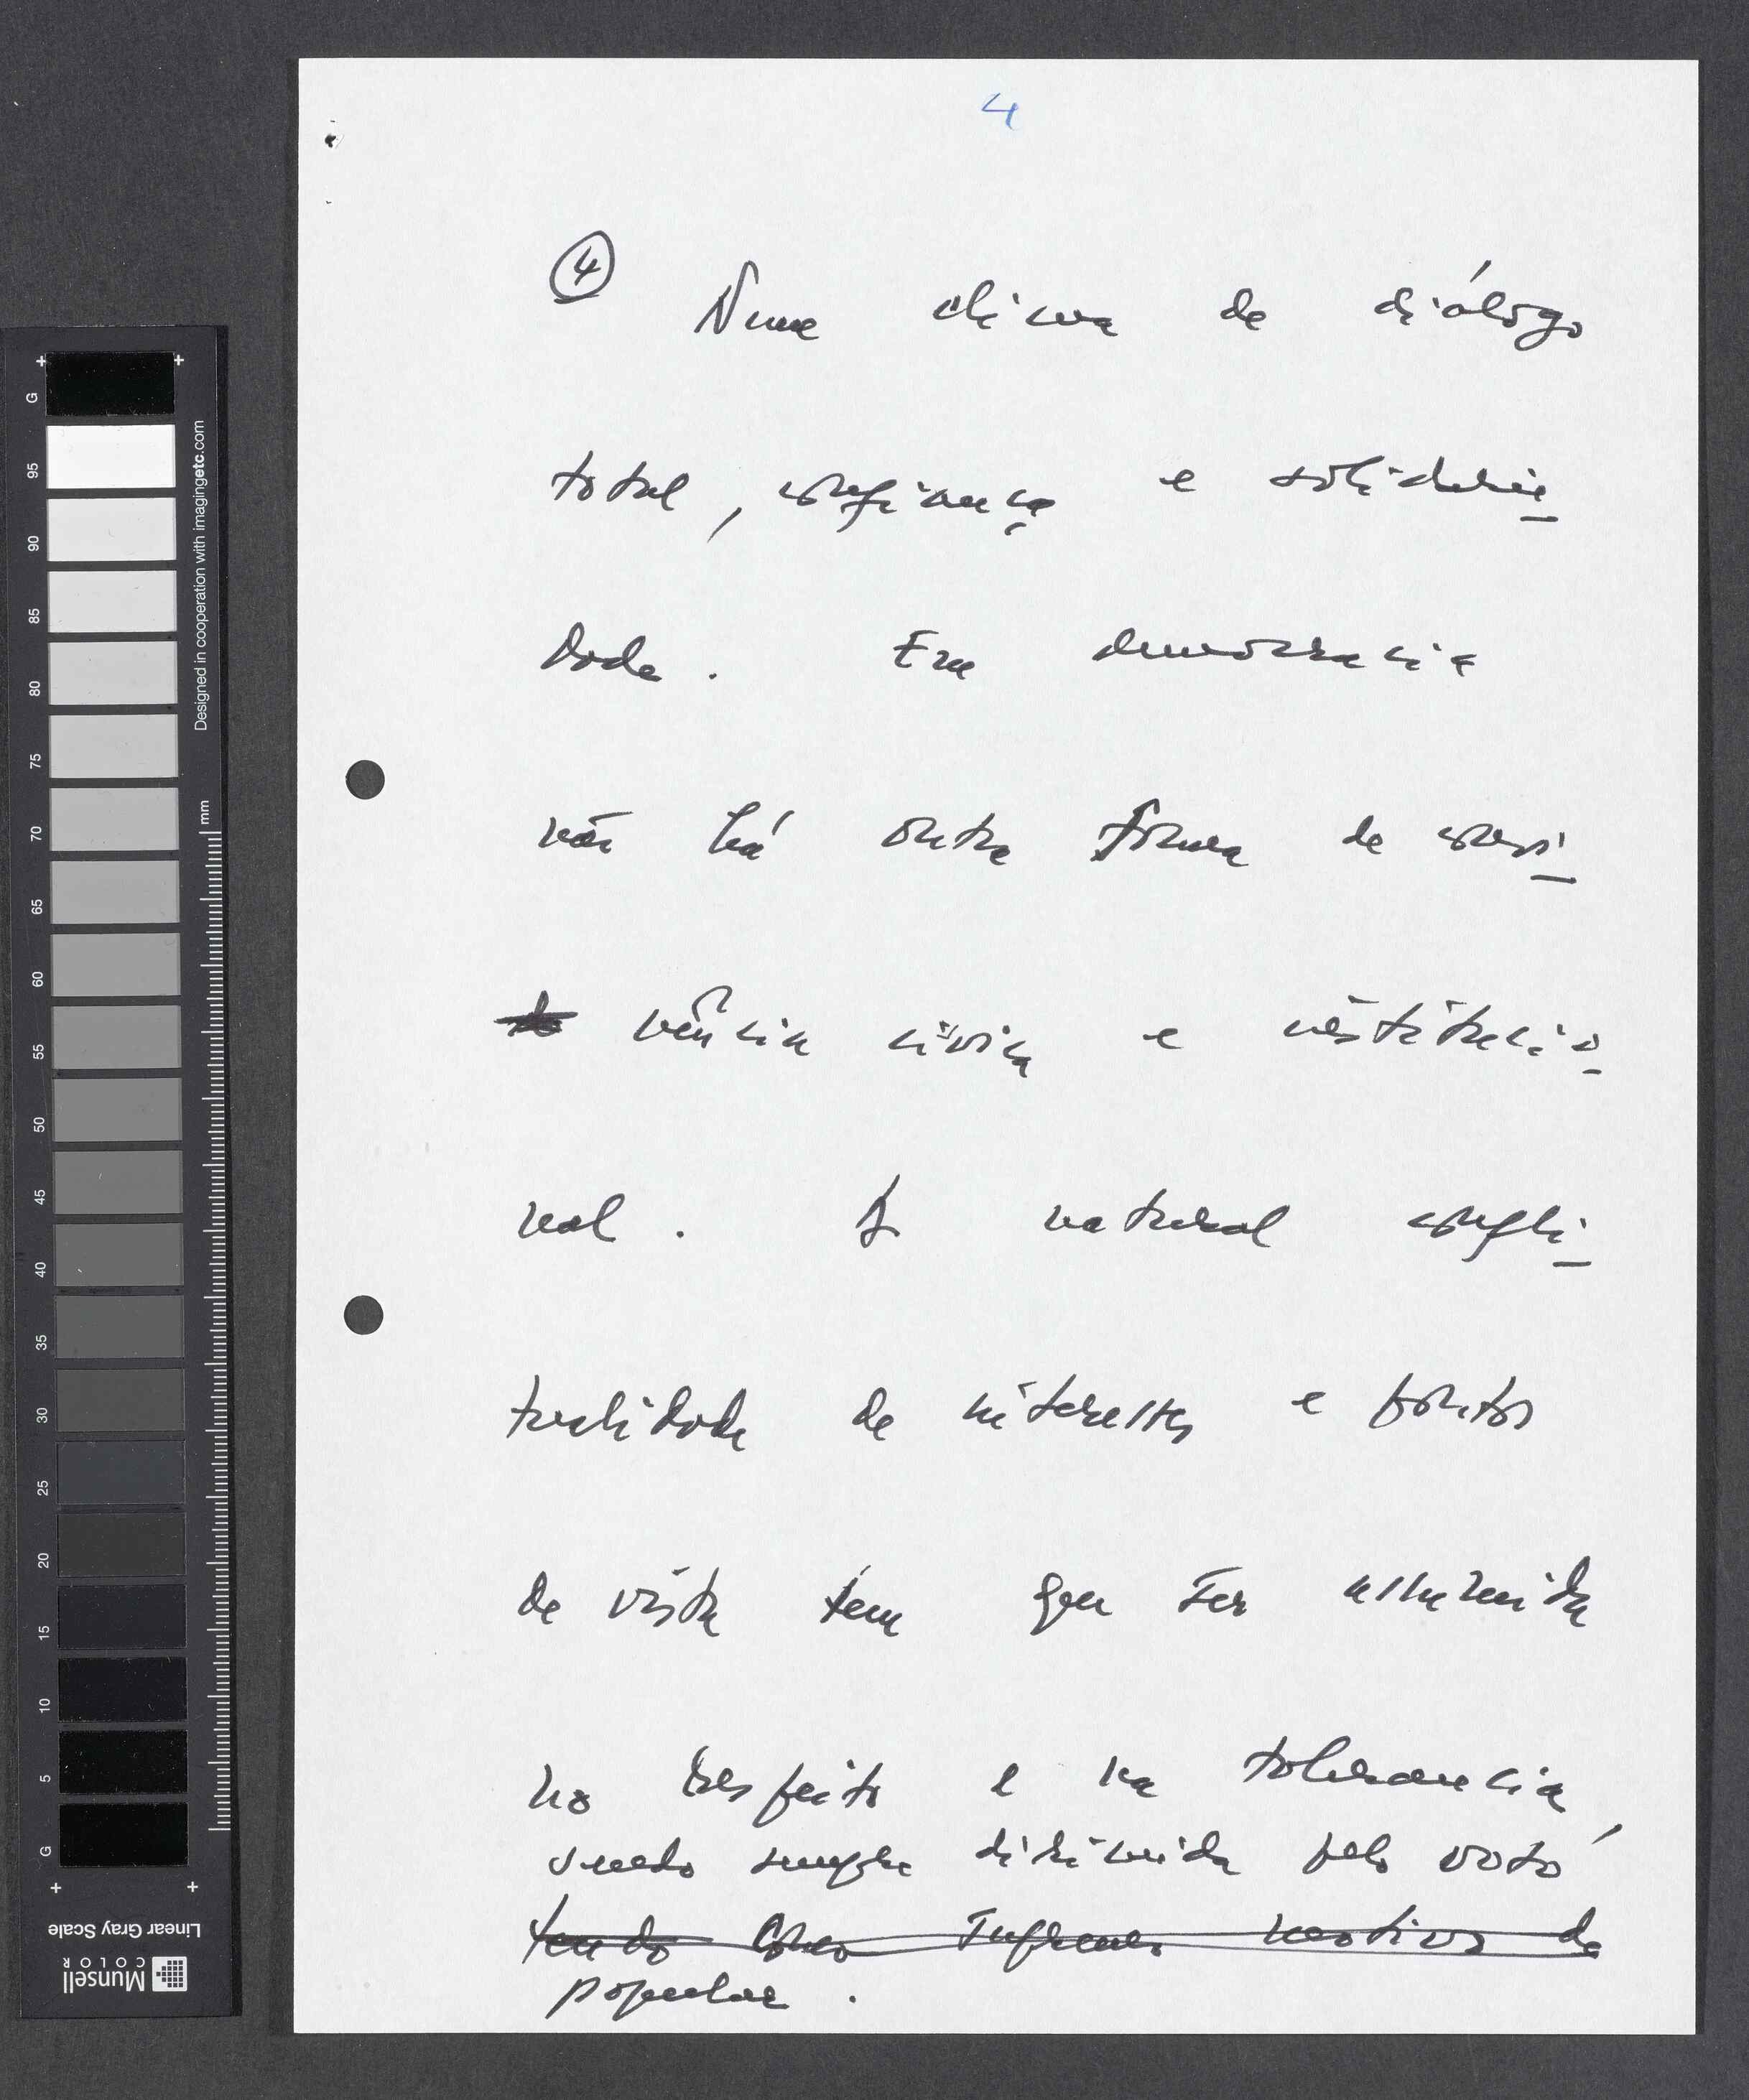 4
④ Num clima de diálogo
total, confiança e solidarie
dade. Em democracia
não há outra forma de convi
vência cívica e institucio
nal. A natural confli
tualidade de interesses e pontos
de vista tem que ser assumida
no respeito e na tolerancia,
sendo sempre dirimida pelo voto
tendo como supremo motivo de
popular.
G 95 90 85 80 75 70 65 60 55 50 45 40 35 30 25 20 15 10 5 G
Designed in cooperation with imagingetc.com
mm
Linear Gray Scale
Munsell
COLOR